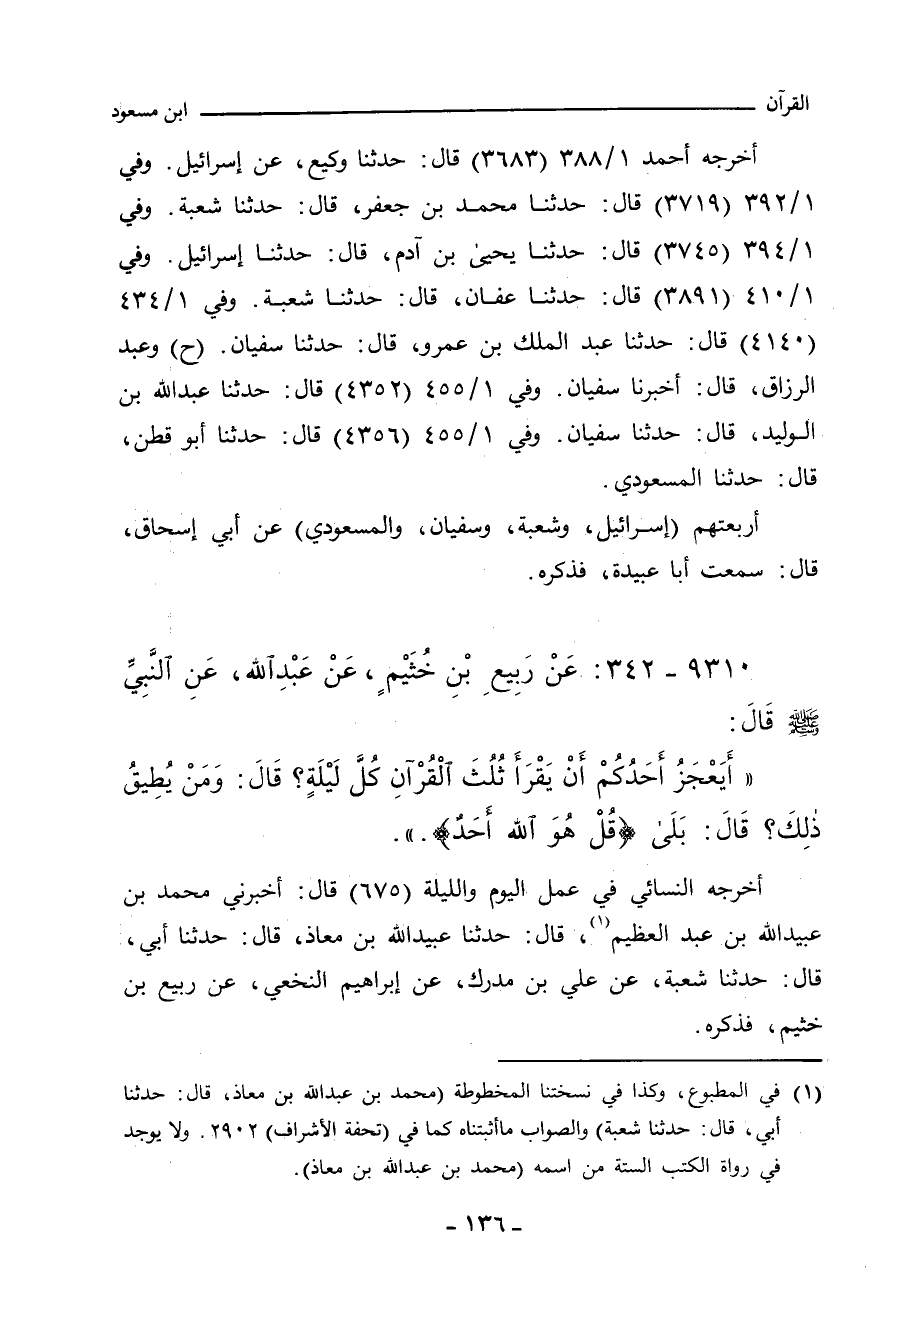 القرآن ــــــــــ ابن مسعود
أخرجه أحمد ٣٨٨/١ (٣٦٨٣) قال: حدثنا وكيع، عن إسرائيل. وفي
٣٩٢/١ (٣٧١٩) قال: حدثنا محمد بن جعفر، قال: حدثنا شعبة. وفي
٣٩٤/١ (٣٧٤٥) قال: حدثنا يحيىٰ بن آدم، قال: حدثنا إسرائيل. وفي
٤١٠/١ (٣٨٩١) قال: حدثنا عفان، قال: حدثنا شعبة. وفي ٤٣٤/١
(٤١٤٠) قال: حدثنا عبد الملك بن عمرو، قال: حدثنا سفيان. (ح) وعبد
الرزاق، قال: أخبرنا سفيان. وفي ٤٥٥/١ (٤٣٥٢) قال: حدثنا عبدالله بن
الوليد، قال: حدثنا سفيان. وفي ٤٥٥/١ (٤٣٥٦) قال: حدثنا أبو قطن،
قال: حدثنا المسعودي.
أربعتهم (إسرائيل، وشعبة، وسفيان، والمسعودي) عن أبي إسحاق،
قال: سمعت أبا عبيدة، فذكره.
٩٣١٠ - ٣٤٢: عَنْ رَبِيعِ بْنِ خُثَيْمٍ، عَنْ عَبْدِٱلله، عَنِ ٱلنَّبِيِّ
ﷺ قَالَ:
« أَيَعْجَزُ أَحَدُكُمْ أَنْ يَقْرَأَ ثُلُثَ ٱلْقُرْآنِ كُلَّ لَيْلَةٍ؟ قَالَ: وَمَنْ يُطِيقُ
ذٰلِكَ؟ قَالَ: بَلَىٰ ﴿قُلْ هُوَ ٱلله أَحَدٌ﴾.».
أخرجه النسائي في عمل اليوم والليلة (٦٧٥) قال: أخبرني محمد بن
عبيدالله بن عبد العظيم(١)، قال: حدثنا عبيدالله بن معاذ، قال: حدثنا أبي،
قال: حدثنا شعبة، عن علي بن مدرك، عن إبراهيم النخعي، عن ربيع بن
خثيم، فذكره.
(١) في المطبوع، وكذا في نسختنا المخطوطة (محمد بن عبدالله بن معاذ، قال: حدثنا
أبي، قال: حدثنا شعبة) والصواب ماأثبتناه كما في (تحفة الأشراف) ٢٩٠٢. ولا يوجد
في رواة الكتب الستة من اسمه (محمد بن عبدالله بن معاذ).
- ١٣٦ -